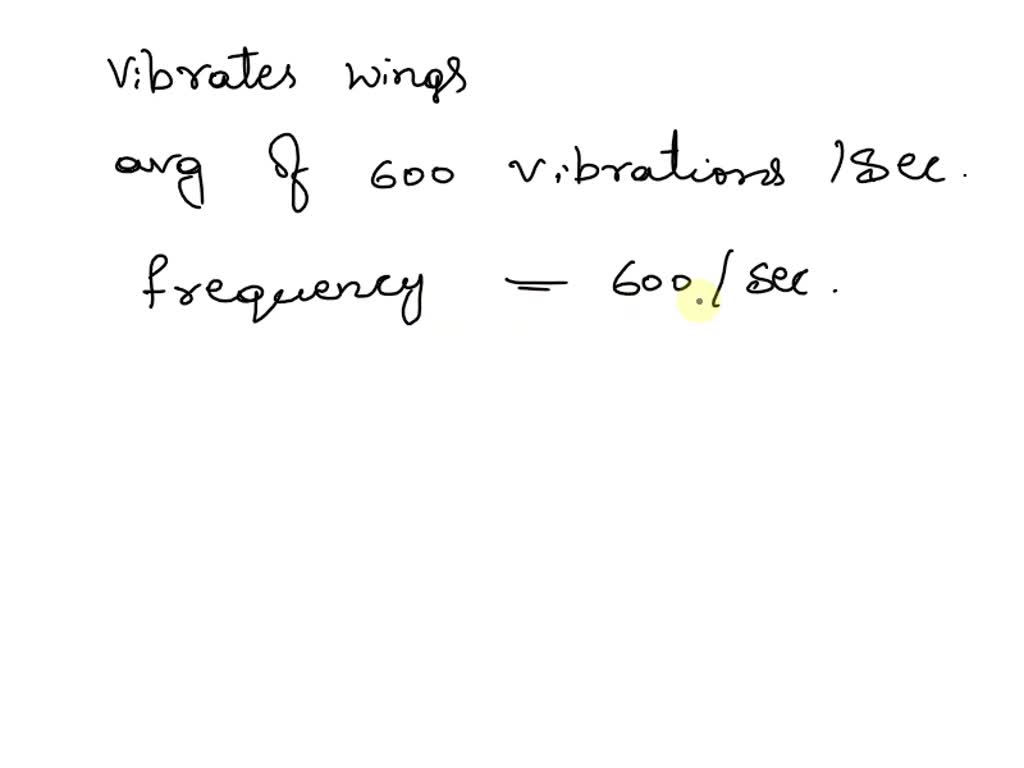 Vibrates wings
avg of 600 vibrations /sec.
frequency = 600/sec.